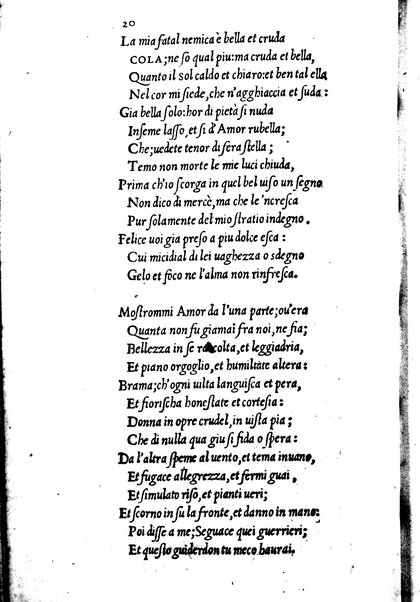 20
La mia fatal nemica è bella et cruda
COLA; ne so qual piu: ma cruda et bella,
Quanto il sol caldo et chiaro: et ben tal ella
Nel cor mi siede, che n'agghiaccia et suda:
Gia bella solo: hor di pietà si nuda
Inseme lasso, et sì d'Amor rubella;
Che; uedete tenor di fera stella;
Temo non morte le mie luci chiuda,
Prima ch'io scorga in quel bel uiso un segno
Non dico di mercè, ma che le 'ncresca
Pur solamente del mio stratio indegno.
Felice uoi gia preso a piu dolce esca:
Cui micidial di lei uaghezza o sdegno
Gelo et foco ne l'alma non rinfresca.
Mostrommi Amor da l'una parte; ou'era
Quanta non fù giamai fra noi, ne fia;
Bellezza in se raccolta, et leggiadria,
Et piano orgoglio, et humiltate altera:
Brama; ch'ogni uilta languisca et pera,
Et fiorisca honestate et cortesia:
Donna in opre crudel, in uista pia;
Che di nulla qua giu si fida o spera:
Da l'altra speme al uento, et tema in uano,
Et fugace allegrezza, et fermi guai,
Et simulato riso, et pianti ueri;
Et scorno in su la fronte, et danno in mano:
Poi disse a me; Seguace quei guerrieri;
Et questo guiderdon tu meco haurai.